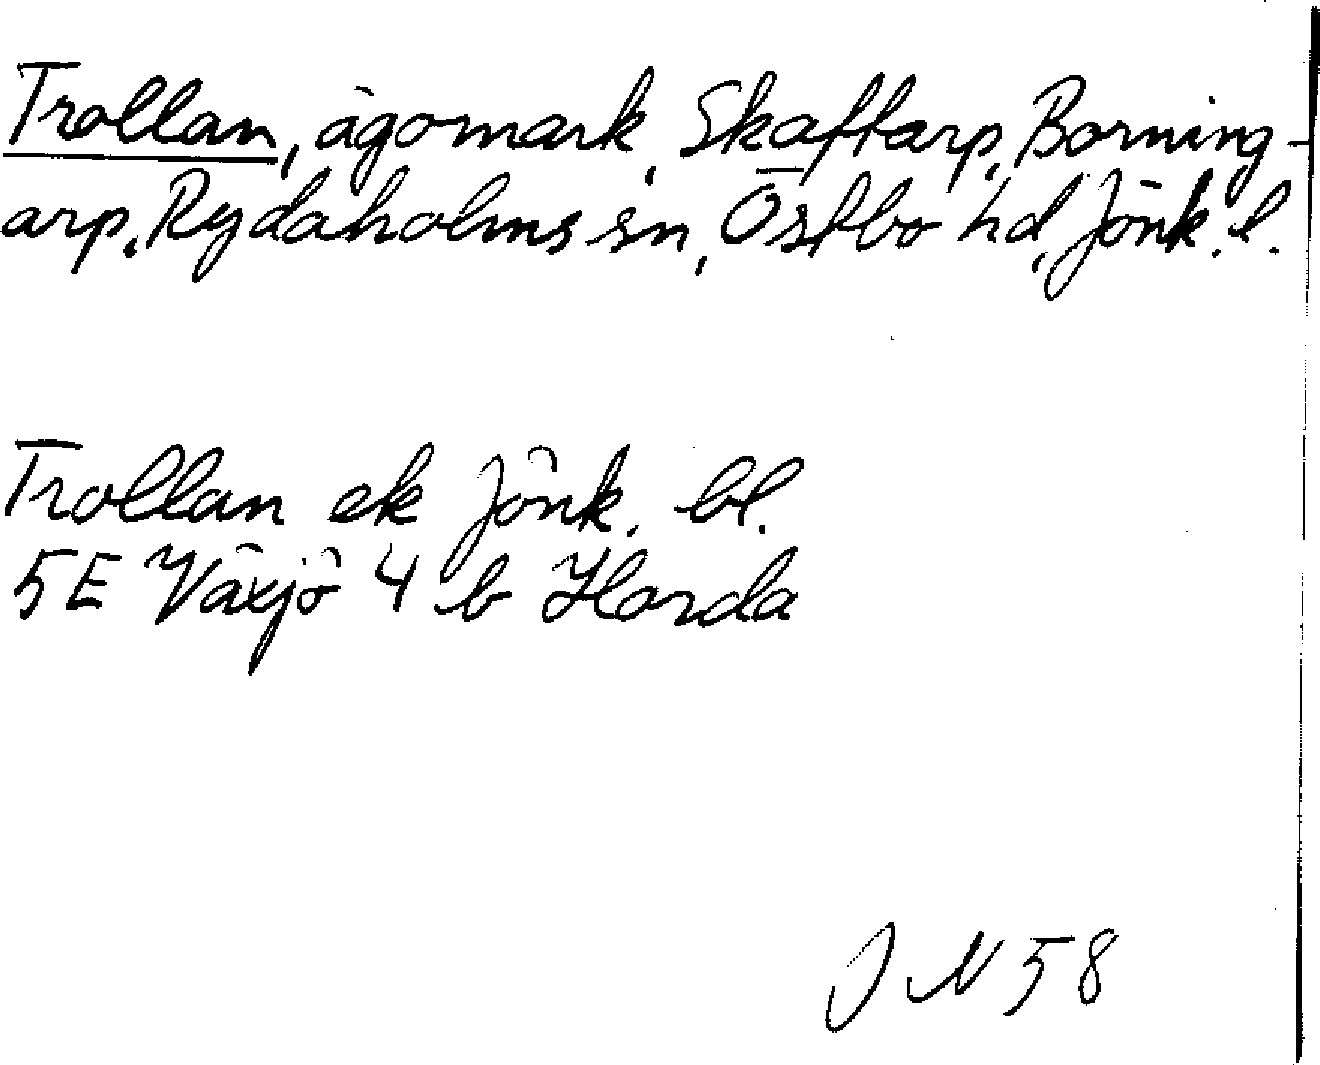 Trollan, ägomark, Skaftarp, Borning-
arp, Rydaholms sn, Östbo hd, Jönk. l.
Trollan ek Jönk. bl.
5E Växjö 4 b Horda
J N 58